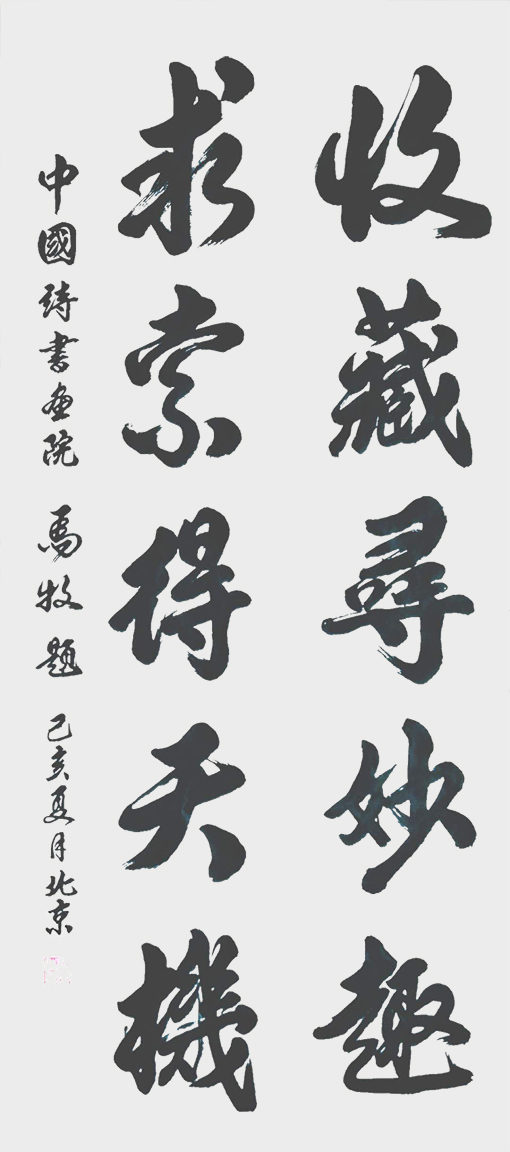 收藏尋妙趣
求索得天機
中國詩書畫院 馬牧題 己亥夏月北京